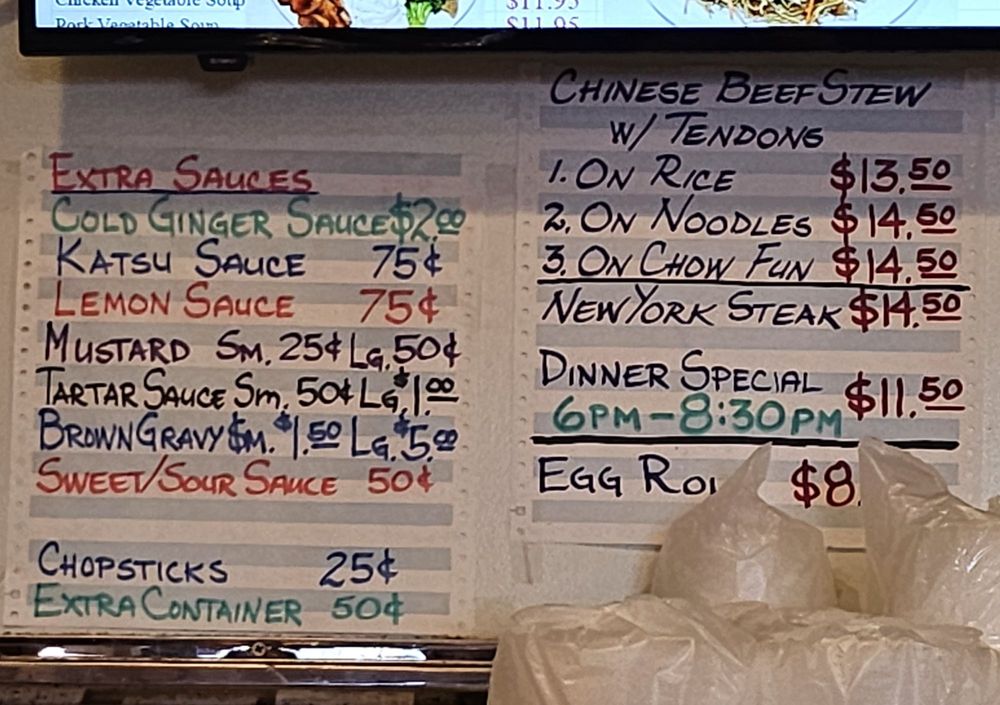 Chicken Vegetable Soup $11.95
Pork Vegetable Soup $11.95
EXTRA SAUCES
COLD GINGER SAUCE $2.00
KATSU SAUCE 75¢
LEMON SAUCE 75¢
MUSTARD SM. 25¢ LG. 50¢
TARTAR SAUCE SM. 50¢ LG. $1.00
BROWN GRAVY SM. $1.50 LG. $5.00
SWEET/SOUR SAUCE 50¢
CHOPSTICKS 25¢
EXTRA CONTAINER 50¢
CHINESE BEEF STEW
W/ TENDONS
1. ON RICE $13.50
2. ON NOODLES $14.50
3. ON CHOW FUN $14.50
NEW YORK STEAK $14.50
DINNER SPECIAL $11.50
6PM-8:30PM
EGG $8.